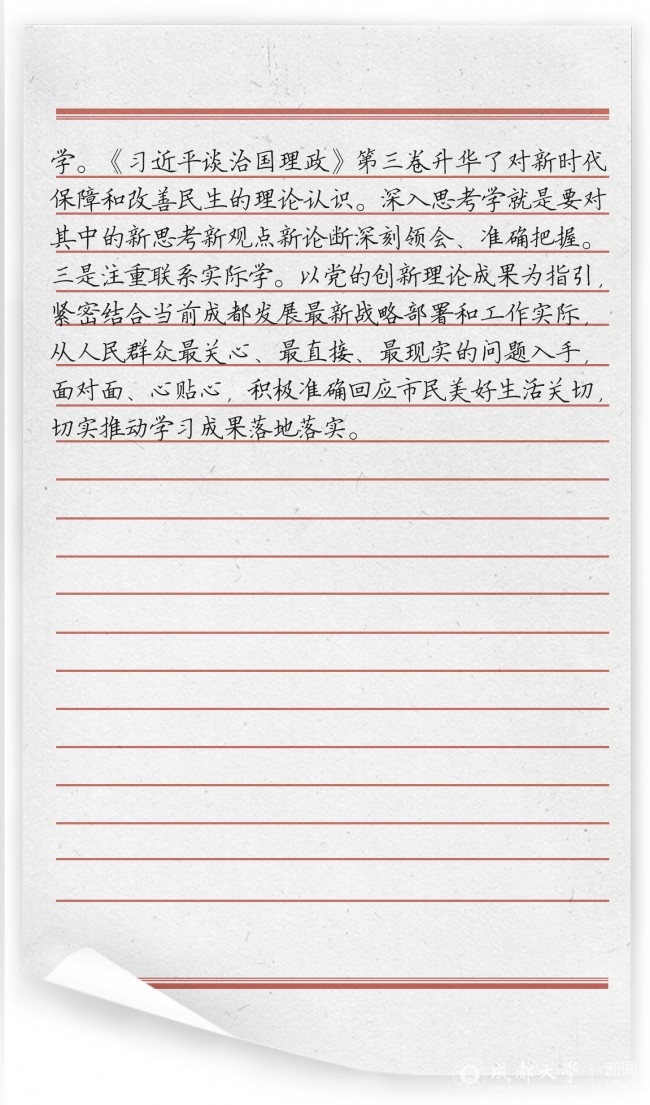 学。《习近平谈治国理政》第三卷升华了对新时代
保障和改善民生的理论认识。深入思考学就是要对
其中的新思考新观点新论断深刻领会、准确把握。
三是注重联系实际学。以党的创新理论成果为指引,
紧密结合当前成都发展最新战略部署和工作实际,
从人民群众最关心、最直接、最现实的问题入手,
面对面、心贴心,积极准确回应市民美好生活关切,
切实推动学习成果落地落实。
成都大学 | 新闻